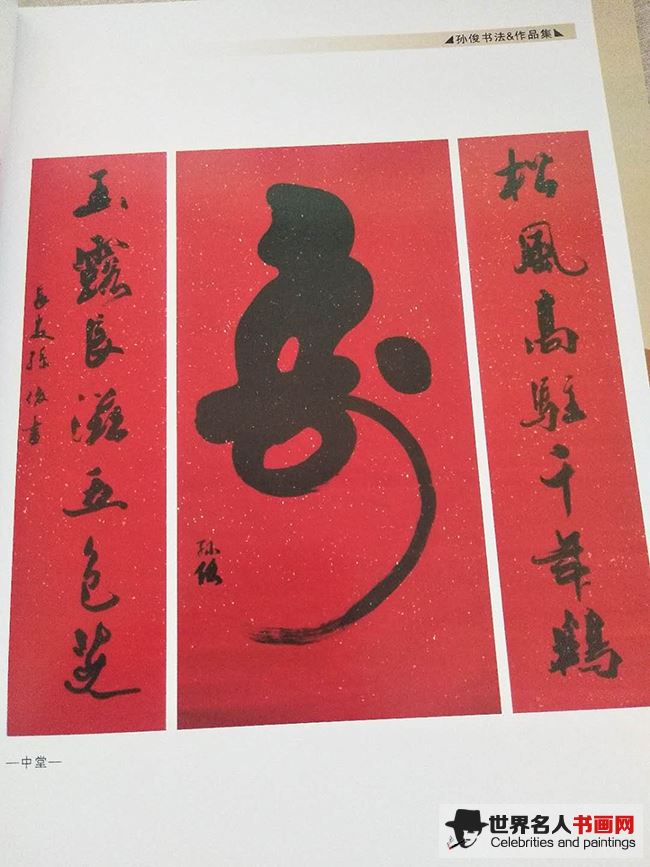 孙俊书法&作品集
松風高駐千年鶴
寿
孫俊
玉露長滋五色芝
孫俊書
—中堂—
世界名人书画网
Celebrities and paintings